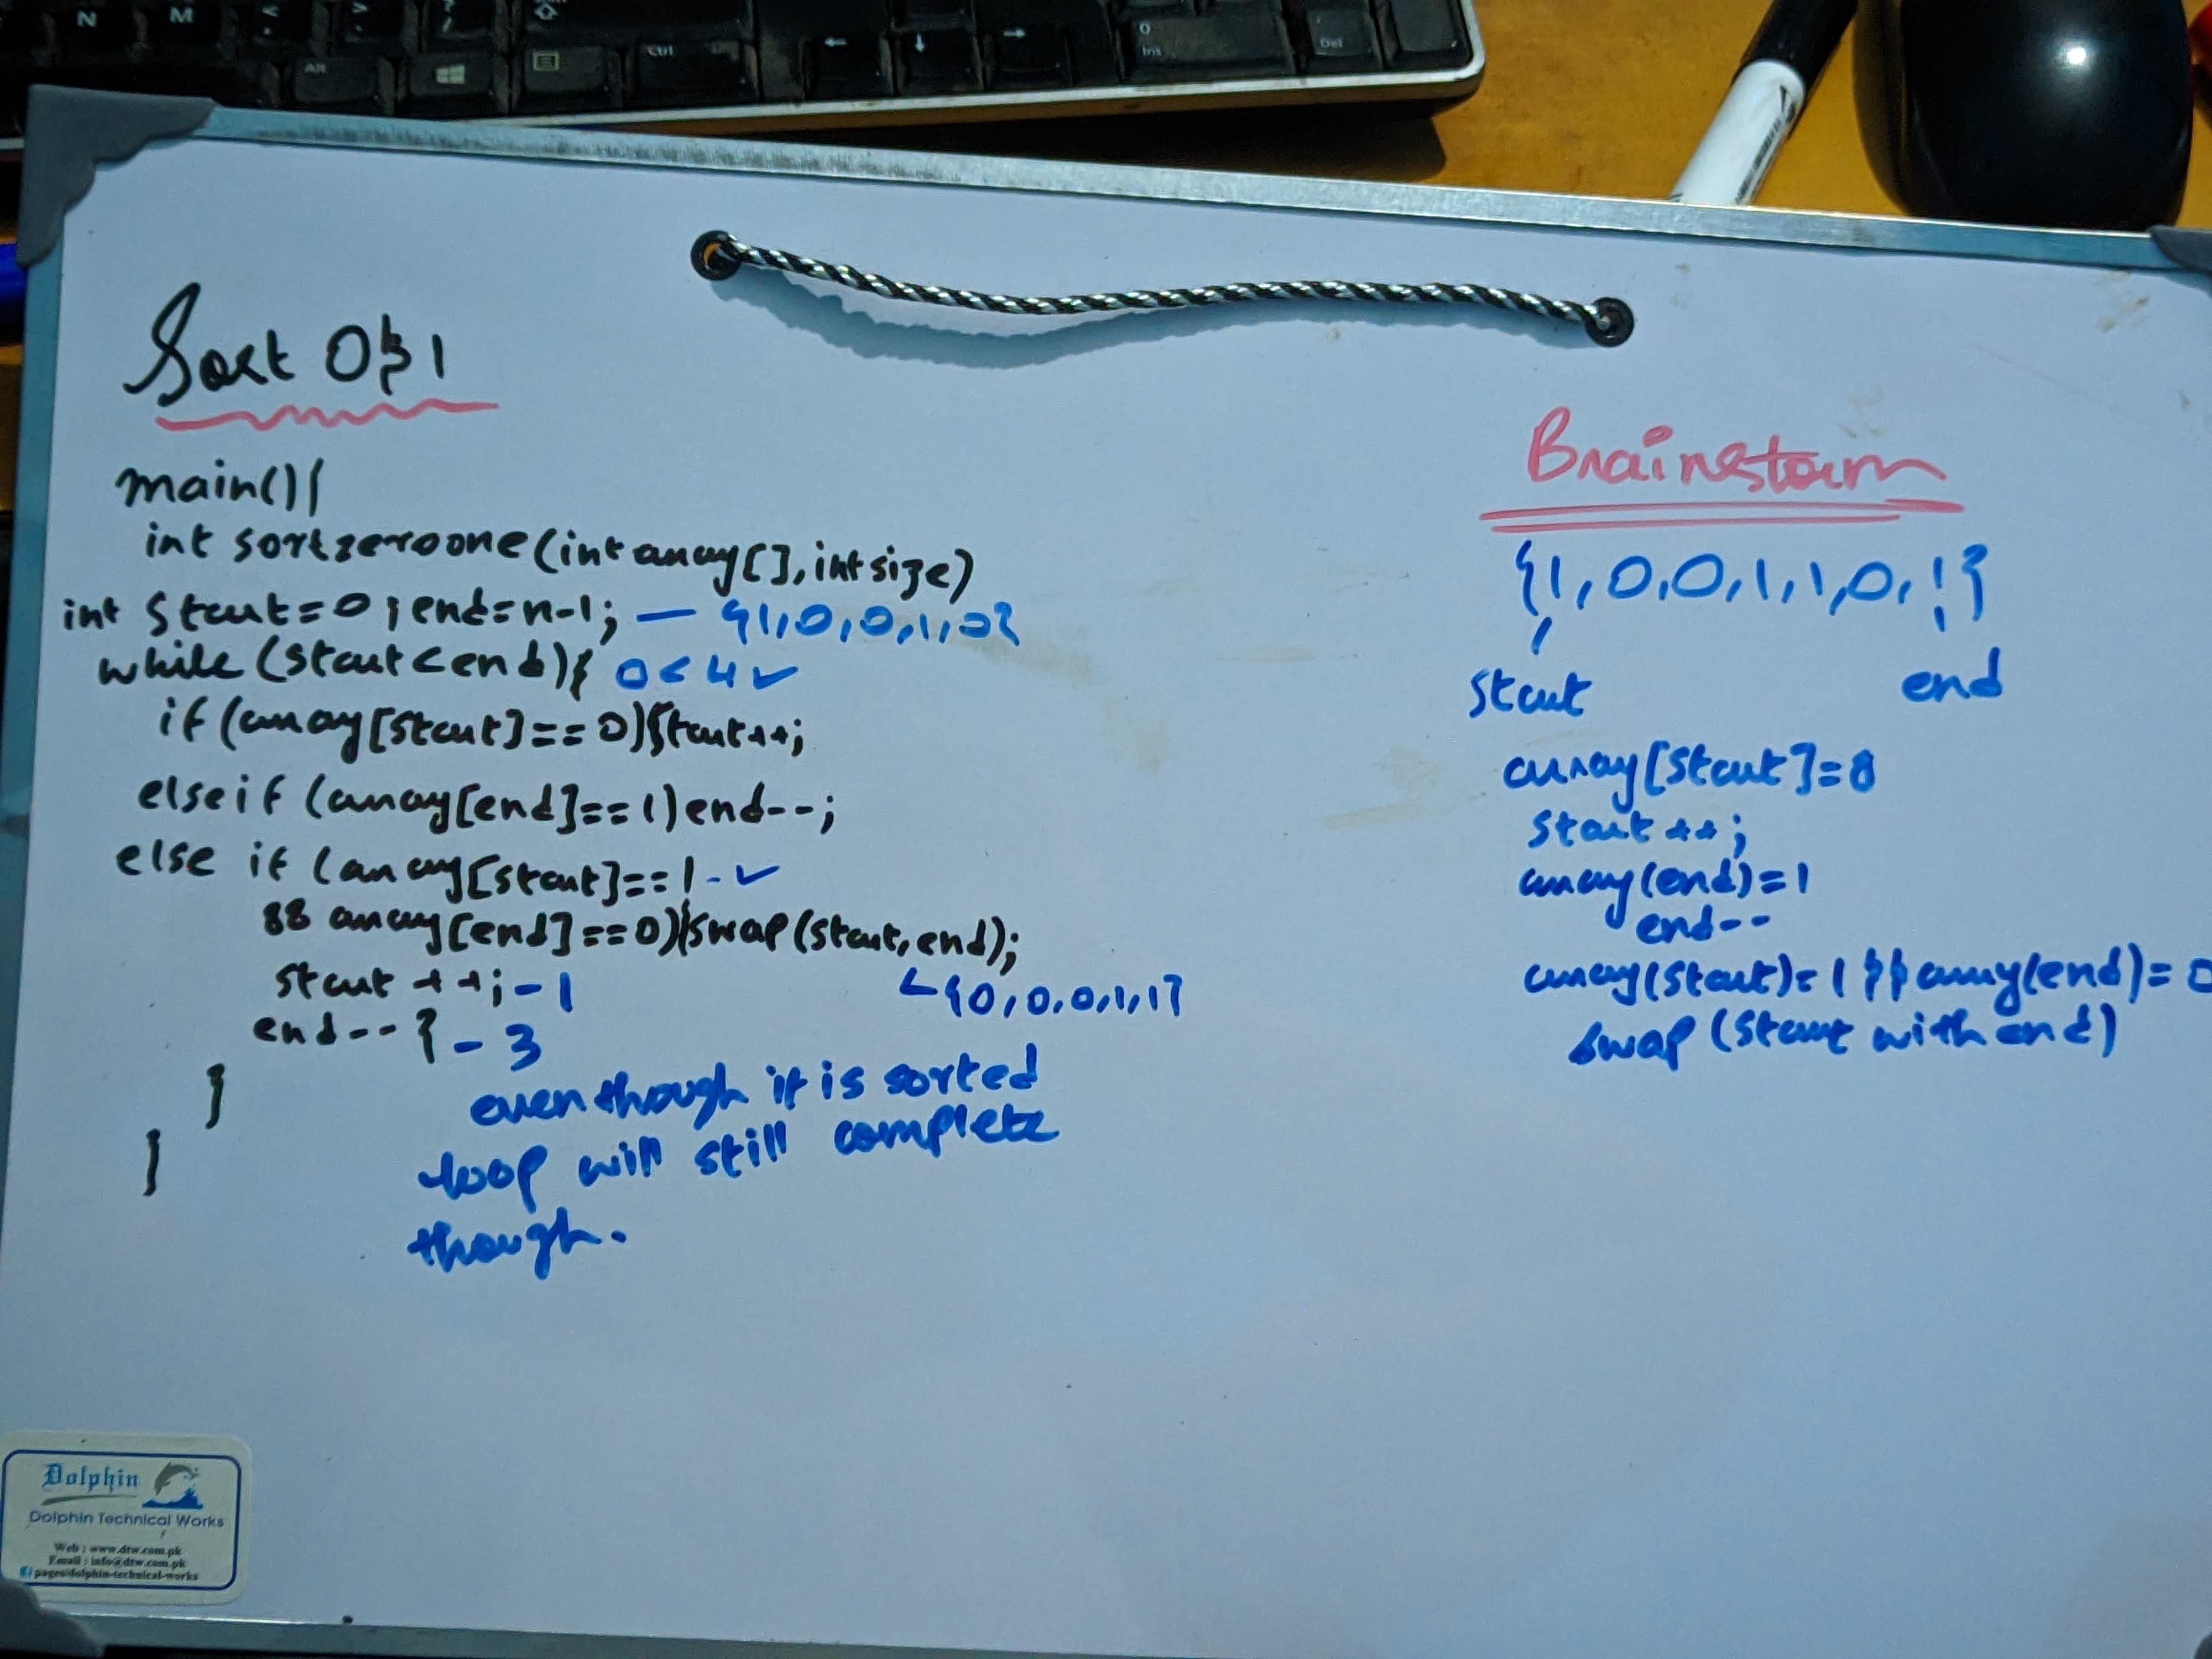 N M < > ? /
Alt Ctrl 0 Ins Del
Sort 0 & 1
main(){
int sortzeroone(int array[], int size)
int start=0; end=n-1; — {1,0,0,1,0}
while (start<end){ 0<4 ✓
if (array[start]==0){start++;
else if (array[end]==1) end--;
else if (array[start]==1 - ✓
&& array[end]==0){swap(start,end);
start ++; - 1 {0,0,0,1,1}
end-- } - 3
}
even though it is sorted
loop will still complete
though.
}
Brainstorm
{1,0,0,1,1,0,1}
start end
array[start]=0
start ++;
array(end)=1
end--
array(start)=1 && array(end)=0
swap (start with end)
Dolphin
Dolphin Technical Works
Web : www.dtw.com.pk
Email : info@dtw.com.pk
pages/dolphin-technical-works